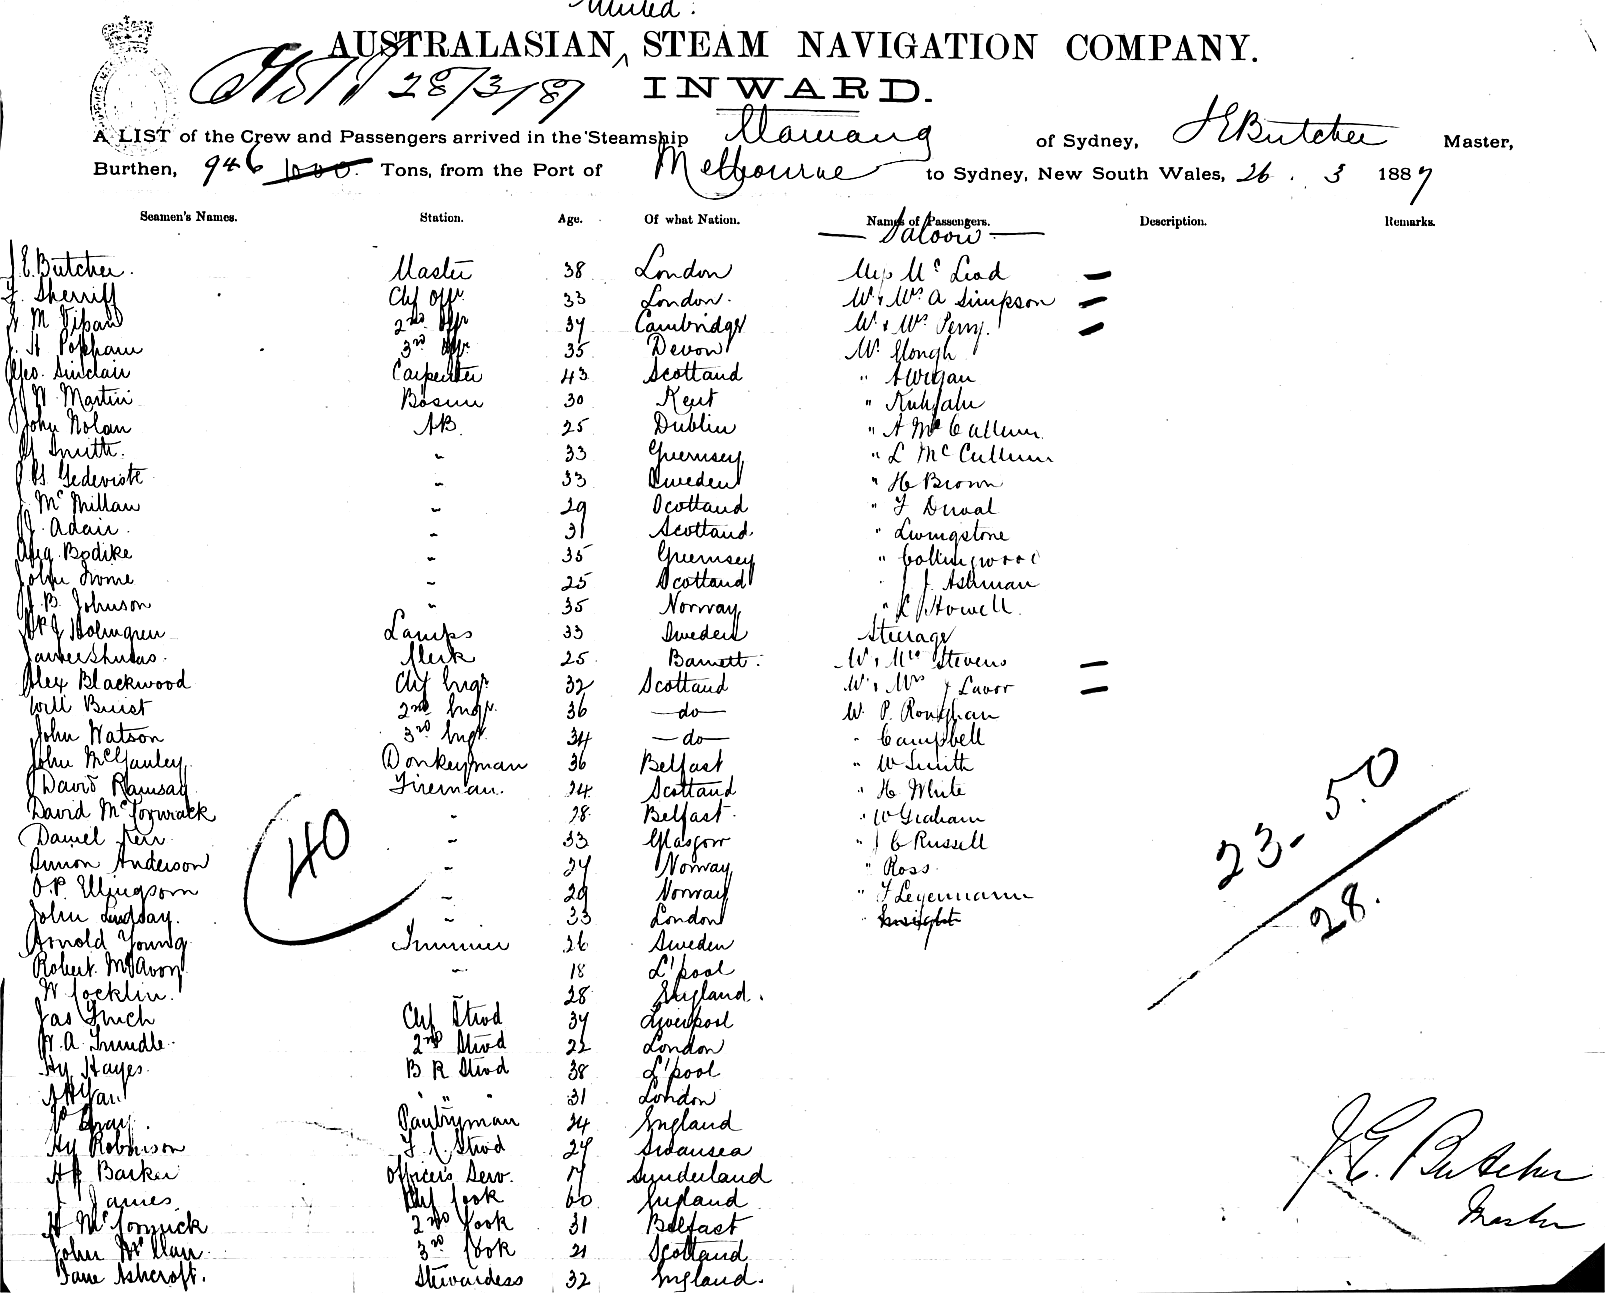 United.
AUSTRALASIAN ^ STEAM NAVIGATION COMPANY.
28/3/87 INWARD.
A LIST of the Crew and Passengers arrived in the Steamship of Sydney, J E Butcher Master,
Burthen, 946 1000 Tons, from the Port of Melbourne to Sydney, New South Wales, 26 . 3 1887
Seamen's Names. Station. Age. Of what Nation. Names of Passengers. Description. Remarks.
Saloon
J. E. Butcher. Master 38 London Mc Leod
Sherriff Chf Offr 33 London. A Simpson
M 2nd Offr 34 Cambridge Perry.
H Popham 3rd Offr 35 Devon Mr
Geo. Sinclair Carpenter 43 Scotland "
W. Martin Bosun 30 Kent "
John Nolan AB. 25 Dublin " A McCallum
Smith. " 33 Guernsey " L McCullum
" 33 Sweden " H Brown
J. McMillan " 29 Scotland " F Duval
J. Adair. " 31 Scotland " Livingstone
Bodike " 35 Guernsey " Collingwood
John " 25 Scotland " J. Ashman
B. Johnson " 35 Norway " L Howell.
J Holmgren Lamps 33 Sweden Steerage
James Clerk 25 Barnett. Stevens
Alex Blackwood Chf Engr 32 Scotland J Lavor
Will Buist 2nd Engr. 36 —do— P.
John Watson 3rd Engr 34 —do— " Campbell
John McGauley Donkeyman 36 Belfast " W Smith
David Ramsay Fireman. 24 Scotland " H White
David McCormack " 28 Belfast " W Graham
Daniel Kerr " 33 Glasgow " J C Russell
Simon Anderson " 24 Norway " Ross
O.P. " 29 Norway "
John Lindsay. " 33 London " Knight
Arnold Young Trimmer 26 Sweden
Robert McAvoy " 18 L'pool
W Cocklin. " 28 England.
Jas Finch Chf Stwd 34 Liverpool
W. A. Trundle 2nd Stwd 22 London
Hy Hayes. B R Stwd 38 L'pool
" " 31 London
Jo Gray. Pantryman 24 England
Hy Robinson Stwd 24 Swansea
Barker Officers Serv. 17 Sunderland
James Chf Cook 60 England
H McCormick 2nd Cook 31 Belfast
John 3rd Cook 21 Scotland
Jane Ashcroft. Stewardess 32 England.
40
23-5.0
28.
J. E. Butcher
Master